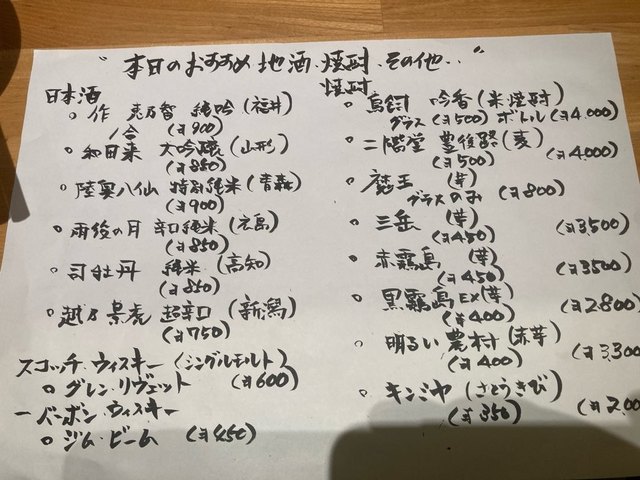 "本日のおすすめ 地酒・焼酎・その他.."
日本酒
作 恵乃智 純吟 (福井)
1合 (¥900)
和田来 大吟醸 (山形)
(¥850)
陸奥八仙 特別純米 (青森)
(¥900)
雨後の月 辛口純米 (広島)
(¥850)
司牡丹 純米 (高知)
(¥850)
越乃景虎 超辛口 (新潟)
(¥750)
スコッチ・ウィスキー (シングルモルト)
グレン・リヴェット (¥600)
バーボン・ウィスキー
ジム・ビーム (¥450)
焼酎
鳥飼 吟香 (米焼酎)
グラス (¥500) ボトル (¥4,000)
二階堂 豊後路 (麦)
(¥500) (¥4000)
魔王 (芋)
グラスのみ (¥800)
三岳 (芋)
(¥450) (¥3500)
赤霧島 (芋)
(¥450) (¥3500)
黒霧島EX (芋)
(¥400) (¥2800)
明るい農村 (赤芋)
(¥400) (¥3,300
キンミヤ (さとうきび)
(¥350)